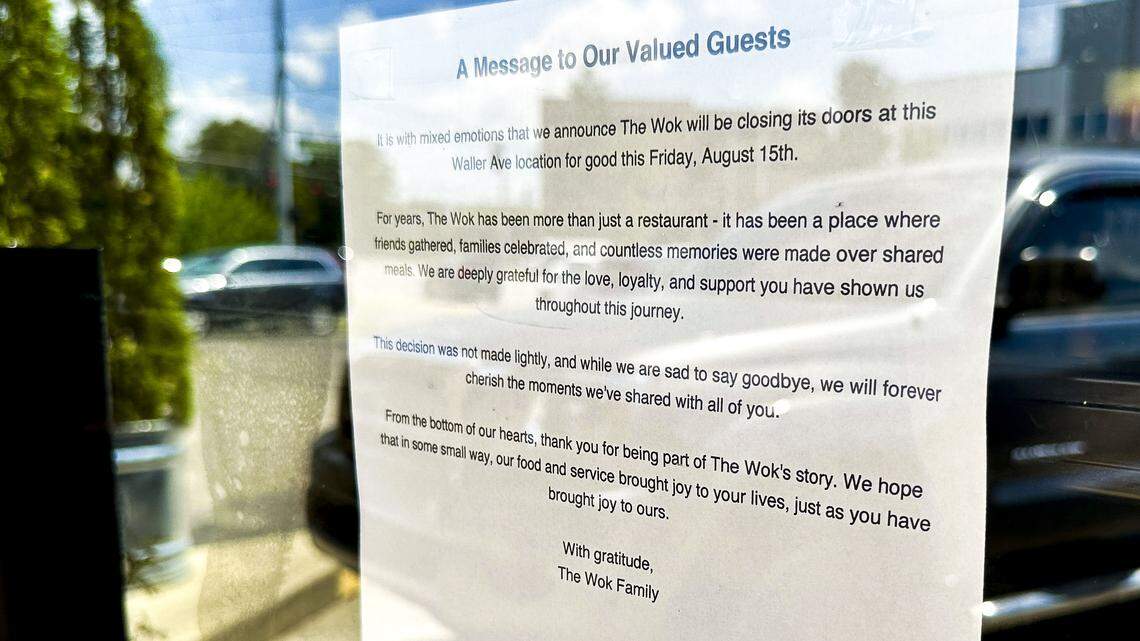 A Message to Our Valued Guests
It is with mixed emotions that we announce The Wok will be closing its doors at this
Waller Ave location for good this Friday, August 15th.
For years, The Wok has been more than just a restaurant - it has been a place where
friends gathered, families celebrated, and countless memories were made over shared
meals. We are deeply grateful for the love, loyalty, and support you have shown us
throughout this journey.
This decision was not made lightly, and while we are sad to say goodbye, we will forever
cherish the moments we've shared with all of you.
From the bottom of our hearts, thank you for being part of The Wok's story. We hope
that in some small way, our food and service brought joy to your lives, just as you have
brought joy to ours.
With gratitude,
The Wok Family